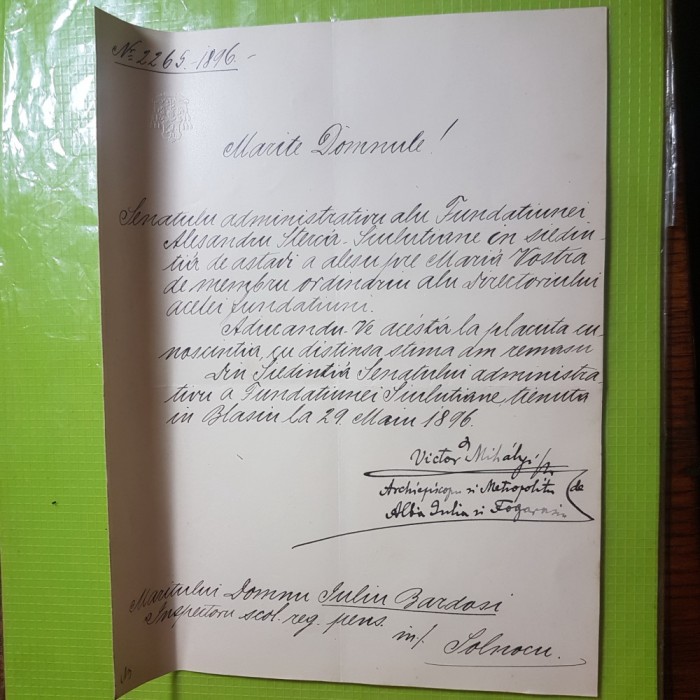 № 2265.-1896.-
Marite Domnule!
Senatulu administrativu alu Fundatiunei
Alesandru Stercá-Siulutiane in siedin-
tiá de astadi a alesu pre Mariá Vostra
de membru ordinariu alu Directoriului
acelei fundatiuni.
Aducandu-Ve acéstá la placuta cu-
noscintia, cu distinsa stima am remasu
Din Siedintiá Senatului administra-
tivu a Fundatiunei Siulutiane, tienuta
in Blasiu la 29. Maiu 1896.
Victor Mihályi
Archiepiscopu si Metropolitu de
Alba Iulia si Fogarasiu
Maritului Domnu Iuliu Bardosi
Inspectoru scol. reg. pens.
in/.
Solnocu.